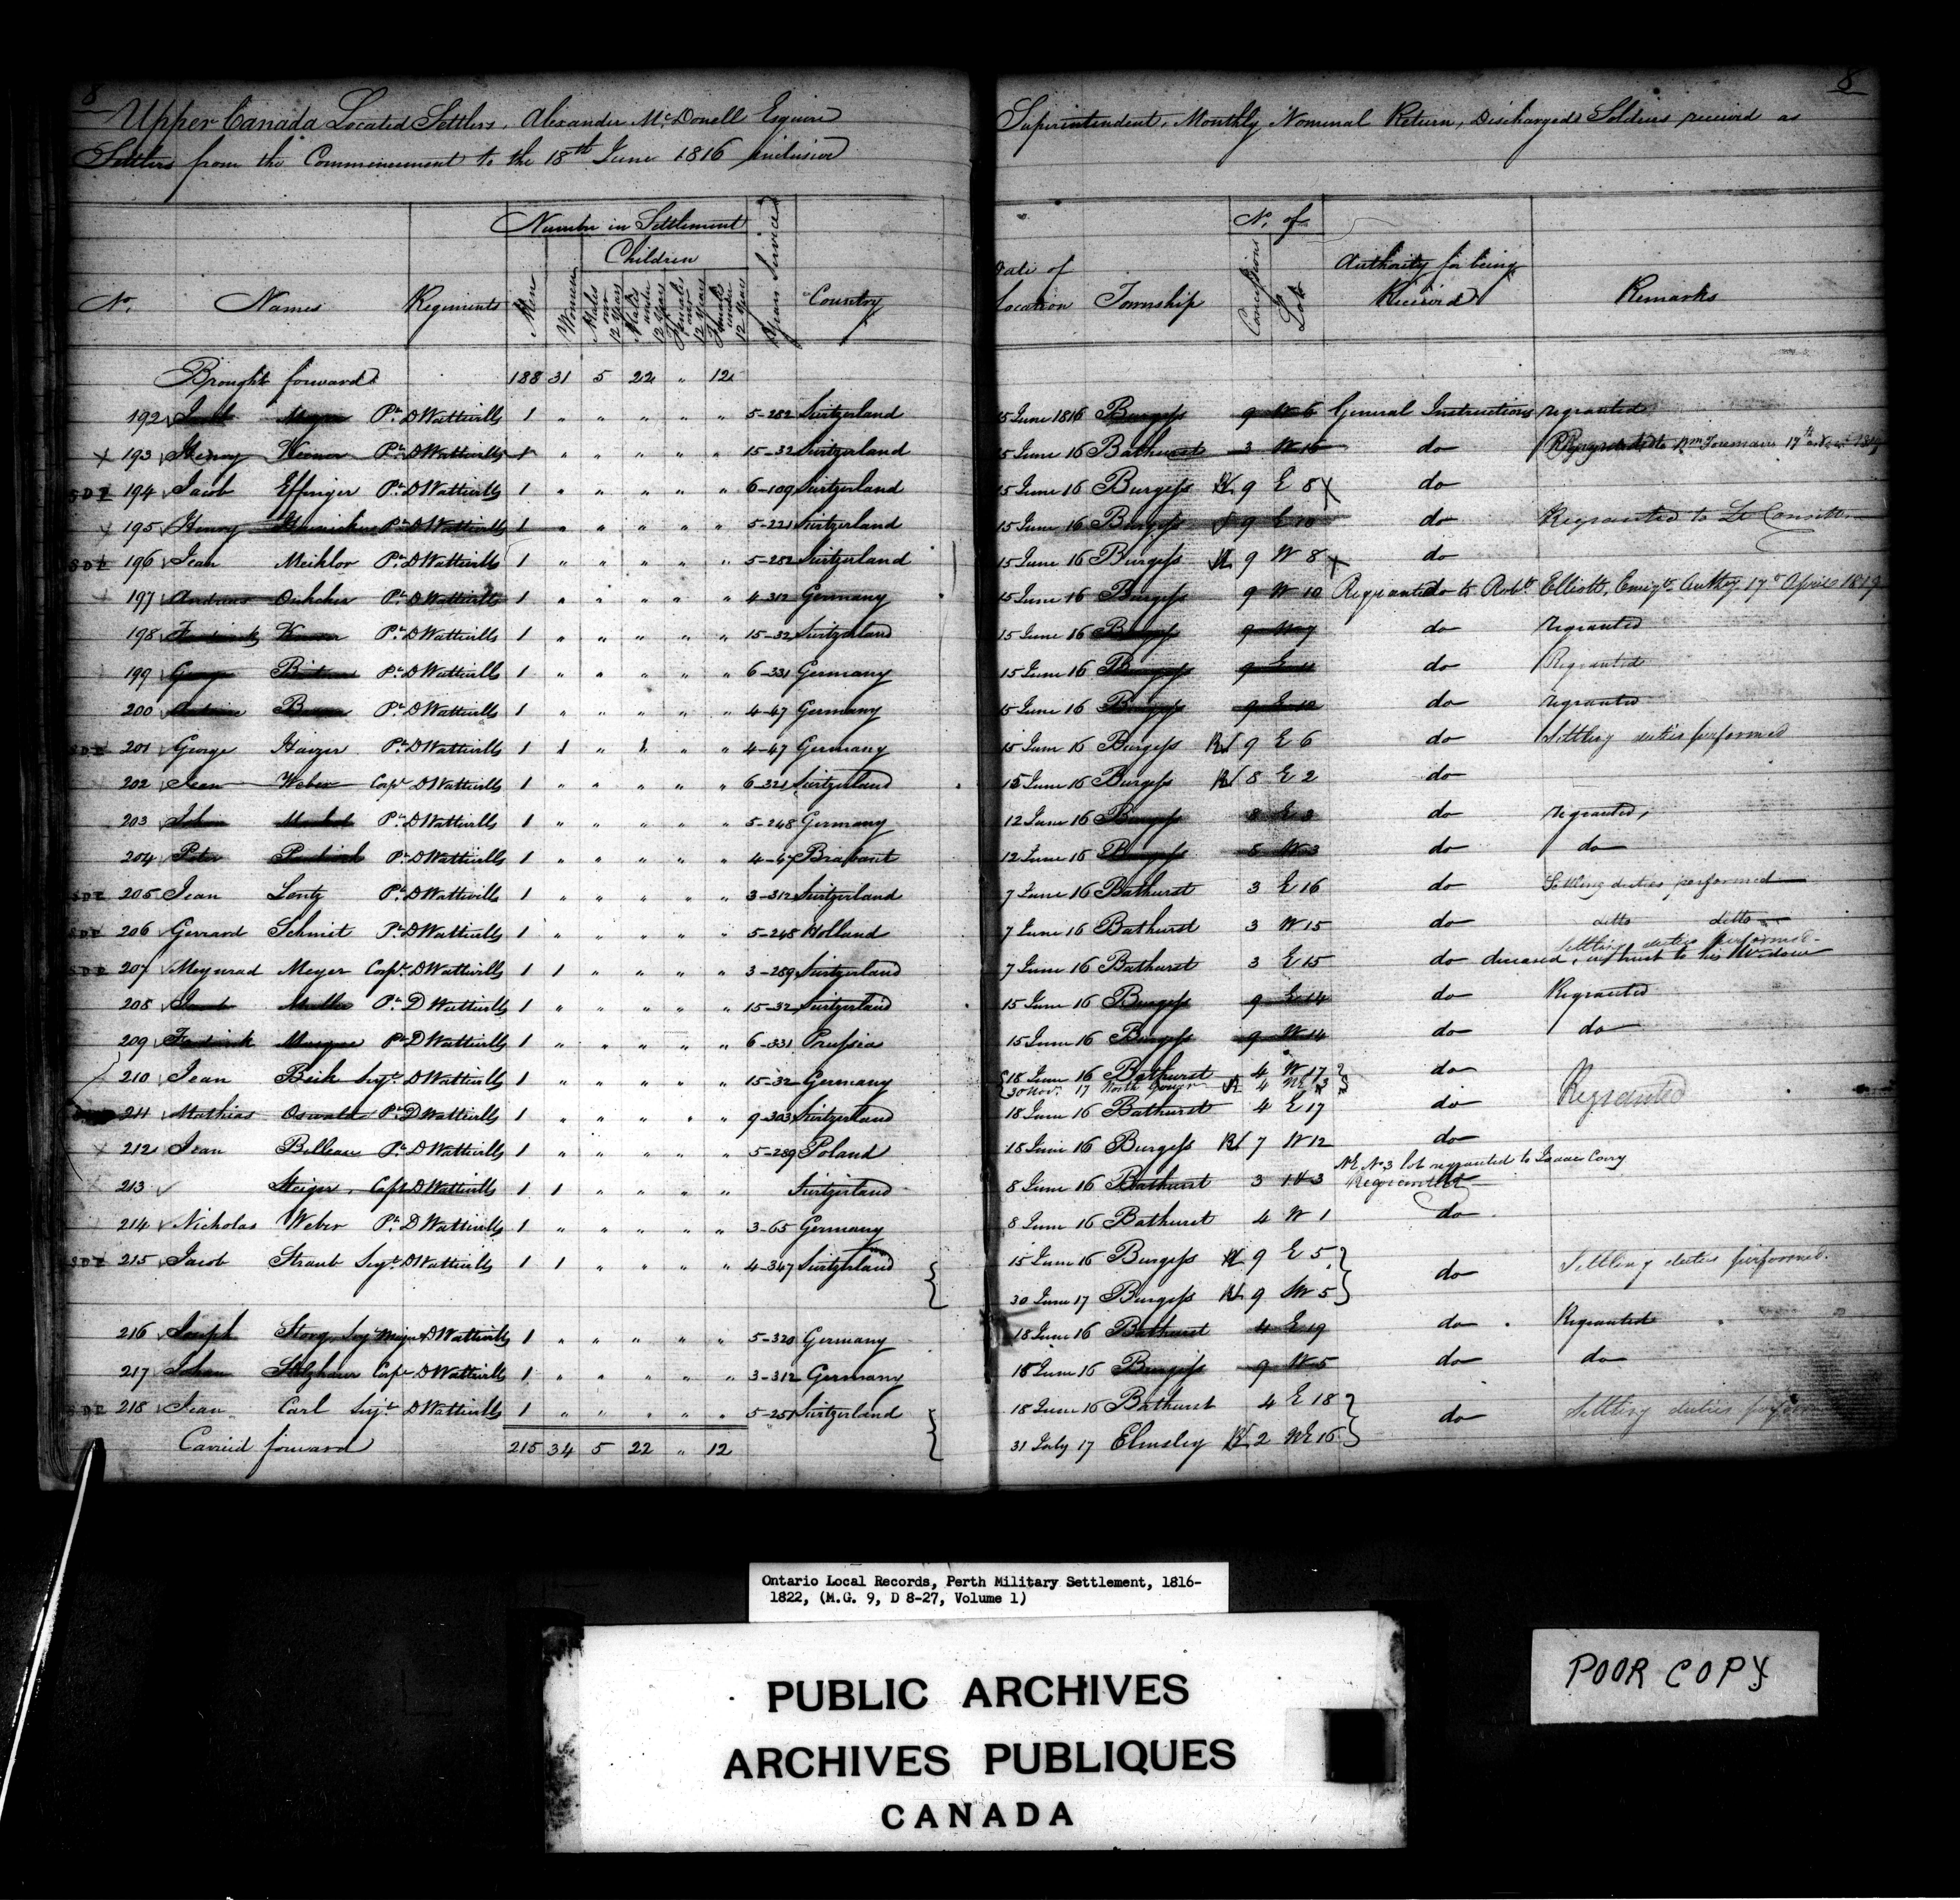 8
8
Upper Canada Located Settlers, Alexander McDonell Esquire Superintendent, Monthly Nominal Return, Discharged Soldiers received as
Settlers from the Commencement to the 18th June 1816 inclusive
Number in Settlement
Children
No. of
No. Names Regiments Men Women Males over 12 Years Males under 12 Years Females over 12 Years Females under 12 Years Years Service Country Date of Location Township Concessions Lots Authority for being Received Remarks
Brought forward 188 31 5 22 " 12
192 Pte. D Wattvills 1 " " " " " 5-282 Switzerland 15 June 1816 Burgess 9 W 6 General Instructions regranted
X 193 Henry Pte. D Wattvills 1 " " " " " 15-32 Switzerland 15 June 16 Bathurst 3 W 16 do Regranted to Wm 17th
SDP 194 Jacob Effinger Pte. D Wattvills 1 " " " " " 6-109 Switzerland 15 June 16 Burgess R 9 E 8 X do
X 195 Henry Pte. D Wattvills 1 " " " " " 5-221 Switzerland 15 June 16 Burgess 9 E 10 do Regranted to Lt
SDP 196 Jean Meihlor Pte. D Wattvills 1 " " " " " 5-282 Switzerland 15 June 16 Burgess R 9 W 8 X do
X 197 Andreas Pte. D Wattvills 1 " " " " " 4-312 Germany 15 June 16 Burgess 9 W 10 do Regranted to Robt. Elliott, Emigts. Authy 17 April 1819
198 Pte. D Wattvills 1 " " " " " 15-32 Switzerland 15 June 16 Burgess 9 do regranted
199 George Pte. D Wattvills 1 " " " " " 6-331 Germany 15 June 16 Burgess 9 do Regranted
200 Pte. D Wattvills 1 " " " " " 4-47 Germany 15 June 16 Burgess 9 E 12 do regranted
SDP 201 George Pte. D Wattvills 1 1 " 1 " " 4-47 Germany 15 June 16 Burgess R 9 E 6 do Settling duties performed
202 Jean Weber Corpl. D Wattvills 1 " " " " " 6-321 Switzerland 15 June 16 Burgess R 8 E 2 do
203 Johan Pte. D Wattvills 1 " " " " " 5-248 Germany 12 June 16 Burgess 8 E 3 do regranted,
204 Peter Pte. D Wattvills 1 " " " " " 4-47 Brabant 12 June 16 Burgess W 3 do do
SDP 205 Jean Lentz Pte. D Wattvills 1 " " " " " 3-312 Switzerland 7 June 16 Bathurst 3 E 16 do Settling duties performed
SDP 206 Gerrard Schmit Pte. D Wattvills 1 " " " " " 5-248 Holland 7 June 16 Bathurst 3 W 15 do ditto ditto
SDP 207 Meynrad Meyer Corpl. D Wattvills 1 1 " " " " 3-289 Switzerland 7 June 16 Bathurst 3 E 15 do Settling duties performed - deceased, in trust to his Widow
208 Jacob Muller Pte. D Wattvills 1 " " " " " 15-32 Switzerland 15 June 16 Burgess 9 E 14 do Regranted
209 Frederick Pte. D Wattvills 1 " " " " " 6-331 Prussia 15 June 16 Burgess 9 W 14 do do
210 Jean Beih Sejt. D Wattvills 1 " " " " " 15-32 Germany 18 June 16 Bathurst 4 W 17 do
30 Nov. 17 North Gower R 4 3
211 Mathias Oswald Pte. D Wattvills 1 " " " " " 9-303 Switzerland 18 June 16 Bathurst 4 E 17 do Regranted
X 212 Jean Belleau Pte. D Wattvills 1 " " " " " 5-289 Poland 18 June 16 Burgess R 7 W 12 do
NE No. 3 lot regranted to Isaac Cory
213 Steiger, Capt. D Wattvills 1 1 " " " " Switzerland 8 June 16 Bathurst 3 3 Regranted
214 Nicholas Weber Pte. D Wattvills 1 " " " " " 3-65 Germany 8 June 16 Bathurst 4 W 1 do
SDP 215 Jacob Straub Sejt. D Wattvills 1 1 " " " " 4-347 Switzerland 15 June 16 Burgess R 9 E 5 do Settling duties performed.
30 June 17 Burgess R 9 W 5
216 Joseph Sejt. Major D Wattvills 1 " " " " " 5-320 Germany 18 June 16 Bathurst 4 E 19 do Regranted
217 Johan Corpl. D Wattvills 1 " " " " " 3-312 Germany 18 June 16 Burgess 9 W 5 do do
SDP 218 Jean Carl Sejt. D Wattvills 1 " " " " " 5-251 Switzerland 18 June 16 Bathurst 4 E 18 do Settling duties
31 July 17 Elmsley R 2 NE 16
Carried forward 215 34 5 22 " 12
Ontario Local Records, Perth Military Settlement, 1816-
1822, (M.G. 9, D 8-27, Volume 1)
PUBLIC ARCHIVES
ARCHIVES PUBLIQUES
CANADA
POOR COPY